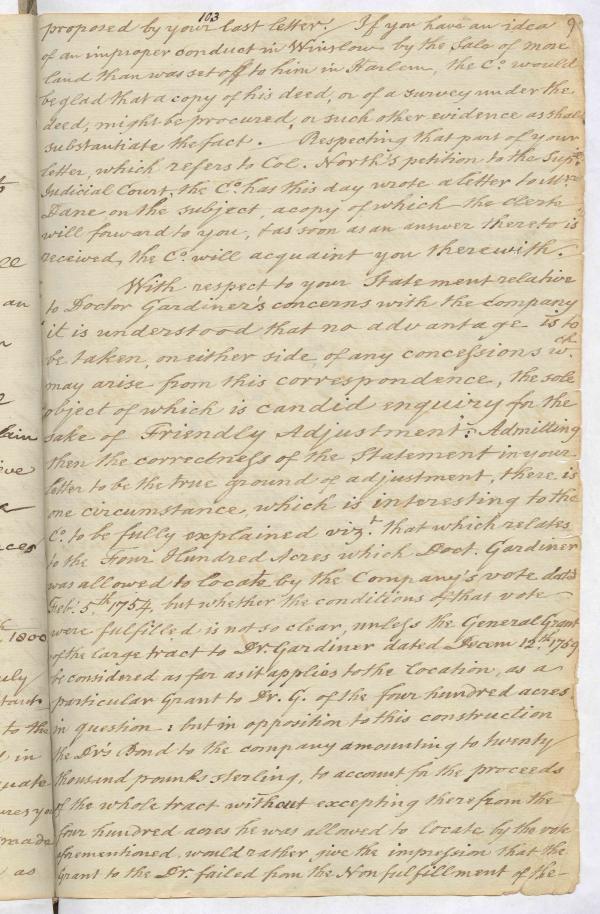 103
9
proposed by your last letter. If you have an idea
of an improper conduct in Winslow by the Sale of more
land than was set off to him in Harlem, the Co. would
be glad that a copy of his deed, or of a survey under the
deed, might be procured, or such other evidence as shall
substantiate the fact. Respecting that part of your
letter, which refers to Col. North's petition to the Supe.
Judicial Court, the Co. has this day wrote a letter to Mr.
Dane on the subject, a copy of which the Clerk
will forward to you, & as soon as an answer thereto is
received, the Co. will acquaint you therewith.
With respect to your Statement relative
to Doctor Gardiner's concerns with the company
it is understood that no advantage is to
be taken, on either side, of any concessions wch.
may arise from this correspondence, the sole
object of which is candid enquiry for the
sake of Friendly Adjustment: Admitting
then the correctness of the Statement in your
letter to be the true ground of adjustment, there is
one circumstance, which is interesting to the
Co. to be fully explained vizt. that which relates
to the Four Hundred Acres which Doct. Gardiner
was allowed to locate by the Company's vote dated
Feby. 5th. 1754, but whether the conditions of that vote
were fulfilled is not so clear, unless the General Grant
of the large tract to Dr. Gardiner dated Decem 12th. 1759
be considered as far as it applies to the Location, as a
particular Grant to Dr. G. of the four hundred acres
in question: but in opposition to this construction
the Dr's Bond to the company amounting to twenty
thousand pounds sterling, to account for the proceeds
of the whole tract without excepting therefrom the
four hundred acres he was allowed to locate by the vote
aforementioned, would rather give the impression that the
Grant to the Dr. failed from the Nonfulfillment of the
an
1800
to the
in
made
as